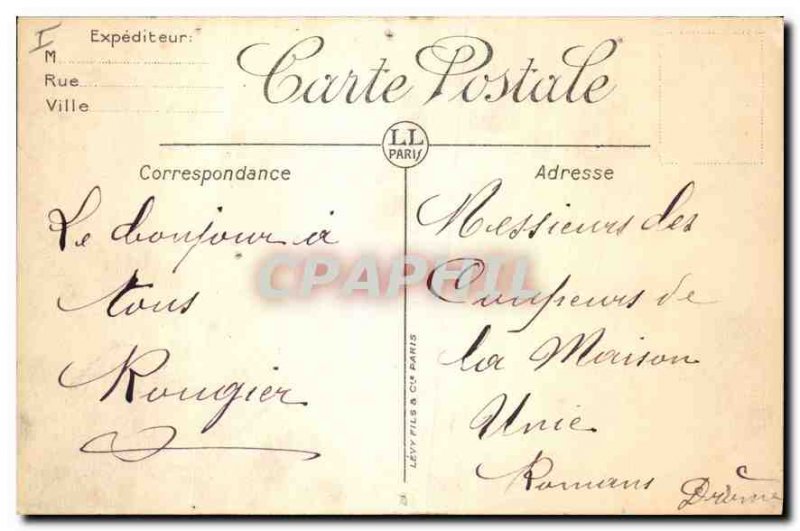 I
Expéditeur:
M
Rue
Ville
Carte Postale
LL
PARIS
Correspondance
Le bonjour à
tous
Rougier
LÉVY FILS & Cie PARIS
Adresse
Messieurs les
Coupeurs de
la Maison
Unie
Romans Drôme
CPAPHIL